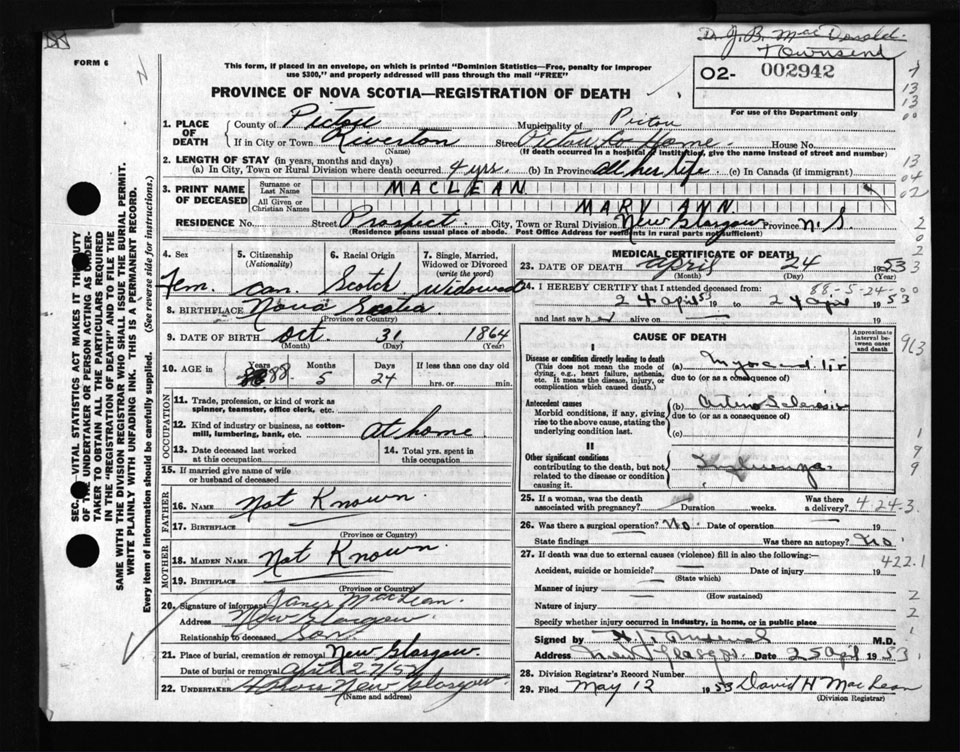 Dr. J. B. MacDonald
Townsend
FORM 6
This form, if placed in an envelope, on which is printed "Dominion Statistics—Free, penalty for improper
use $300," and properly addressed will pass through the mail "FREE"
PROVINCE OF NOVA SCOTIA—REGISTRATION OF DEATH
02- 002942
For use of the Department only
1. PLACE OF DEATH
County of Pictou Municipality of Pictou
If in City or Town Riverton Street Pictou Co Home House No.
(Name) (If death occurred in a hospital or institution, give the name instead of street and number)
2. LENGTH OF STAY (in years, months and days)
(a) In City, Town or Rural Division where death occurred 4 yrs. (b) In Province all her life (c) In Canada (if immigrant)
3. PRINT NAME OF DECEASED
Surname or Last Name MACLEAN
All Given or Christian Names MARY ANN
RESIDENCE No. Street Prospect City, Town or Rural Division New Glasgow Province N. S.
(Residence means usual place of abode. Post Office Address for residents in rural parts not sufficient)
4. Sex
Fem.
5. Citizenship
(Nationality)
Can.
6. Racial Origin
Scotch
7. Single, Married,
Widowed or Divorced
(write the word)
Widowed
8. BIRTHPLACE Nova Scotia
(Province or Country)
9. DATE OF BIRTH Oct. 31 1864
(Month) (Day) (Year)
10. AGE in Years 88 Months 5 Days 24 If less than one day
hrs. or min.
OCCUPATION
11. Trade, profession, or kind of work as
spinner, teamster, office clerk, etc.
12. Kind of industry or business, as cotton-
mill, lumbering, bank, etc. At home.
13. Date deceased last worked
at this occupation
14. Total yrs. spent in
this occupation
15. If married give name of wife
or husband of deceased
FATHER
16. NAME Not Known.
17. BIRTHPLACE
(Province or Country)
MOTHER
18. MAIDEN NAME Not Known.
19. BIRTHPLACE
(Province or Country)
20. Signature of informant James MacLean.
Address New Glasgow
Relationship to deceased Son.
21. Place of burial, cremation or removal New Glasgow.
Date of burial or removal April 27/53
22. UNDERTAKER New Glasgow.
(Name and address)
MEDICAL CERTIFICATE OF DEATH
23. DATE OF DEATH April 24 1953
(Month) (Day) (Year)
88-5-24-00
24. I HEREBY CERTIFY that I attended deceased from:
24 April 53 19 to 24 April 1953
and last saw h er alive on 19
CAUSE OF DEATH
Approximate
interval be-
tween onset
and death
I
Disease or condition directly leading to death
(This does not mean the mode of
dying, e.g., heart failure, asthenia,
etc. It means the disease, injury, or
complication which caused death.)
(a) Myocarditis
due to (or as a consequence of)
Antecedent causes
Morbid conditions, if any, giving
rise to the above cause, stating the
underlying condition last.
(b) Arterio Sclerosis
due to (or as a consequence of)
(c)
II
Other significant conditions
contributing to the death, but not
related to the disease or condition
causing it.
Influenza
25. If a woman, was the death
associated with pregnancy? Duration weeks. Was there
a delivery? 4-24-3.
26. Was there a surgical operation? No. Date of operation 19
State findings Was there an autopsy? No.
27. If death was due to external causes (violence) fill in also the following:—
422.1
Accident, suicide or homicide? Date of injury 19
(State which)
Manner of injury
(How sustained)
Nature of injury
Specify whether injury occurred in industry, in home, or in public place
Signed by M.D.
Address New Glasgow Date 25 April 1953
28. Division Registrar's Record Number
29. Filed May 12 1953 David H MacLean
(Division Registrar)
SEC. VITAL STATISTICS ACT MAKES IT THE DUTY
OF THE UNDERTAKER OR PERSON ACTING AS UNDER-
TAKER TO OBTAIN ALL THE PARTICULARS REQUIRED
IN THE "REGISTRATION OF DEATH" AND TO FILE THE
SAME WITH THE DIVISION REGISTRAR WHO SHALL ISSUE THE BURIAL PERMIT.
WRITE PLAINLY WITH UNFADING INK. THIS IS A PERMANENT RECORD.
Every item of information should be carefully supplied. (See reverse side for instructions.)
13
13
00
13
04
02
2
0
2
3
9/3
1
9
9
2
2
1